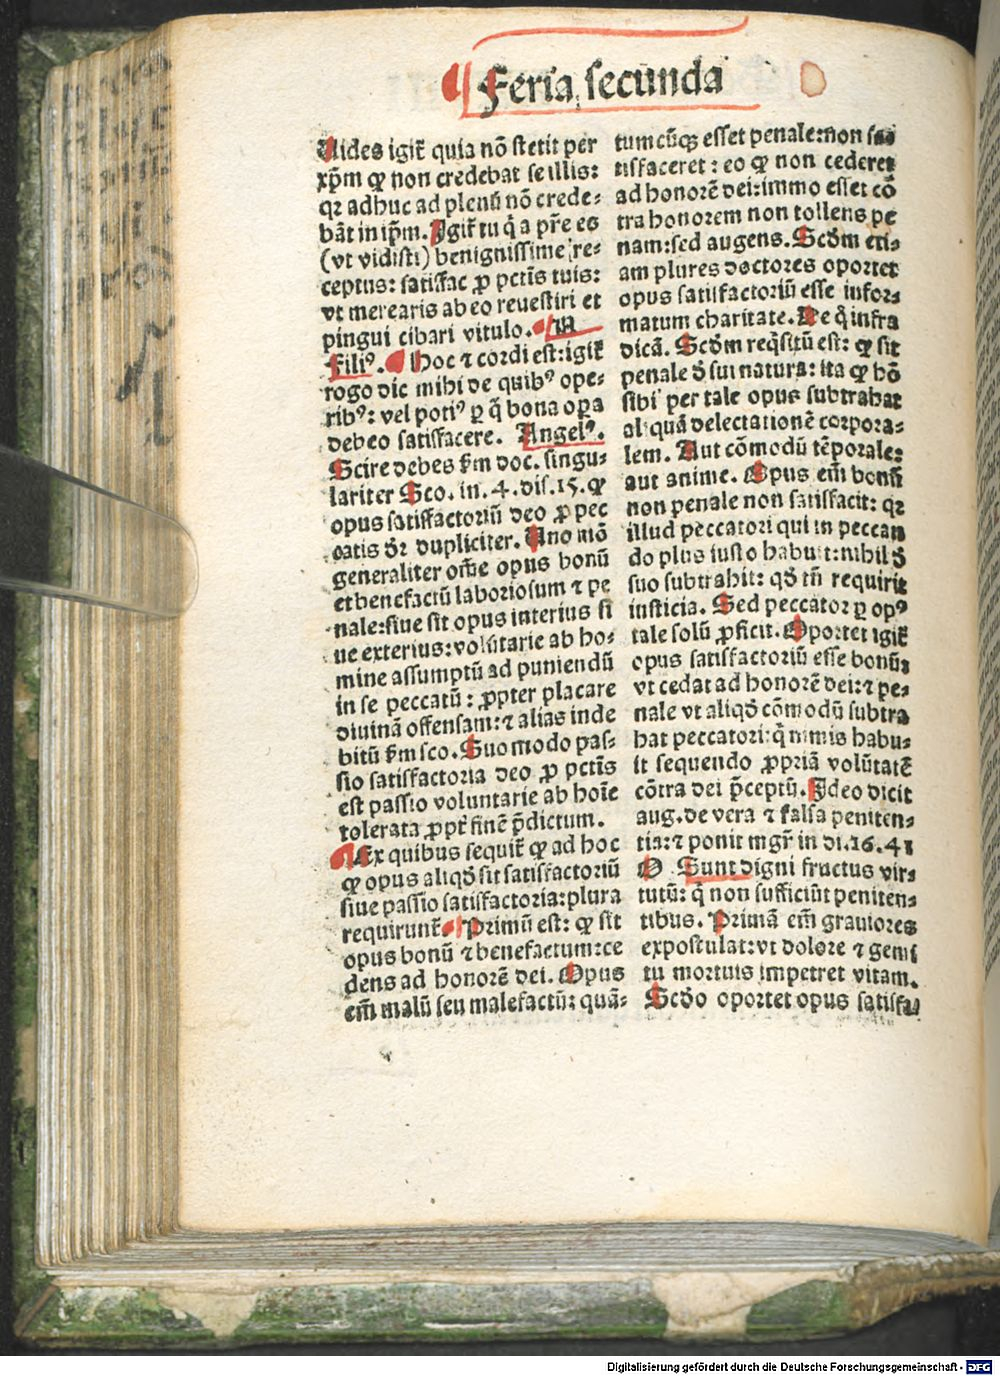 Feria secunda
Uides igit̃ quia nõ stetit per
xp̃m ꝙ non credebat se illis:
qꝛ adhuc ad plenũ nõ crede-
bãt in ip̃m. Igit̃ tu q̃ a pr̃e eo
(vt vidisti) benignissime re-
ceptus: satisfac ꝓ pctĩs tuis:
vt merearis ab eo reuestiri et
pingui cibari vitulo.
Filiꝰ. Hoc ⁊ cordi est: igit̃
rogo dic mihi de quibꝰ ope-
ribꝰ: vel potiꝰ ꝑ q̃ bona oꝑa
debeo satisfacere. Angelꝰ.
Scire debes ẜm doc. singu-
lariter Sco. in. 4. dis. 15. ꝙ
opus satisfactoriũ deo ꝓ pec
catis dr̃ dupliciter. Uno mõ
generaliter om̃e opus bonũ
et benefactũ laboriosum ⁊ pe
nale: siue sit opus interius si
ue exterius: volũtarie ab ho-
mine assumptũ ad puniendũ
in se peccatũ: ꝓpter placare
diuinã offensam: ⁊ alias inde
bitũ ẜm sco. Suo modo pas-
sio satisfactoria deo ꝓ pctĩs
est passio voluntarie ab hoĩe
tolerata ꝓpt̃ finẽ p̃dictum.
Ex quibus sequit̃ ꝙ ad hoc
ꝙ opus aliqđ sit satisfactoriũ
siue passio satisfactoria: plura
requirunt̃. Primũ est: ꝙ sit
opus bonũ ⁊ benefactum: ce
dens ad honorẽ dei. Opus
em̃ malũ seu malefactũ: quã-
tumcũqꝫ esset penale: non sa
tisfaceret: eo ꝙ non cederet
ad honorẽ dei: immo esset cõ
tra honorem non tollens pe
nam: sed augens. Scđm eti-
am plures doctores oportet
opus satisfactoriũ esse infor-
matum charitate. De q̃ infra
dicã. Scđm reqͥsitũ est: ꝙ sit
penale đ sui natura: ita ꝙ hõ
sibi per tale opus subtrahat
aliquã delectationẽ corpora-
lem. Aut cõmodũ tẽporale:
aut anime. Opus em̃ bonũ
non penale non satisfacit: qꝛ
illud peccatori qui in peccan
do plus iusto habuit: nihil đ
suo subtrahit: qđ tñ requirit
iusticia. Sed peccator ꝑ opꝰ
tale solũ ꝓficit. Oportet igit̃
opus satisfactoriũ esse bonũ:
vt cedat ad honorẽ dei: ⁊ pe-
nale vt aliqđ cõmodũ subtra
hat peccatori: q̃ nimis habu-
it sequendo ꝓpriã volũtatẽ
cõtra dei p̃ceptũ. Ideo dicit
aug. de vera ⁊ falsa peniten-
tia: ⁊ ponit mgr̃ in di. 16. 41
Sunt digni fructus vir-
tutũ: q̃ non sufficiũt peniten-
tibus. Primã em̃ grauiores
expostulat: vt dolore ⁊ gemi
tu mortuis impetret vitam.
Scđo oportet opus satisfa
Digitalisierung gefördert durch die Deutsche Forschungsgemeinschaft - DFG